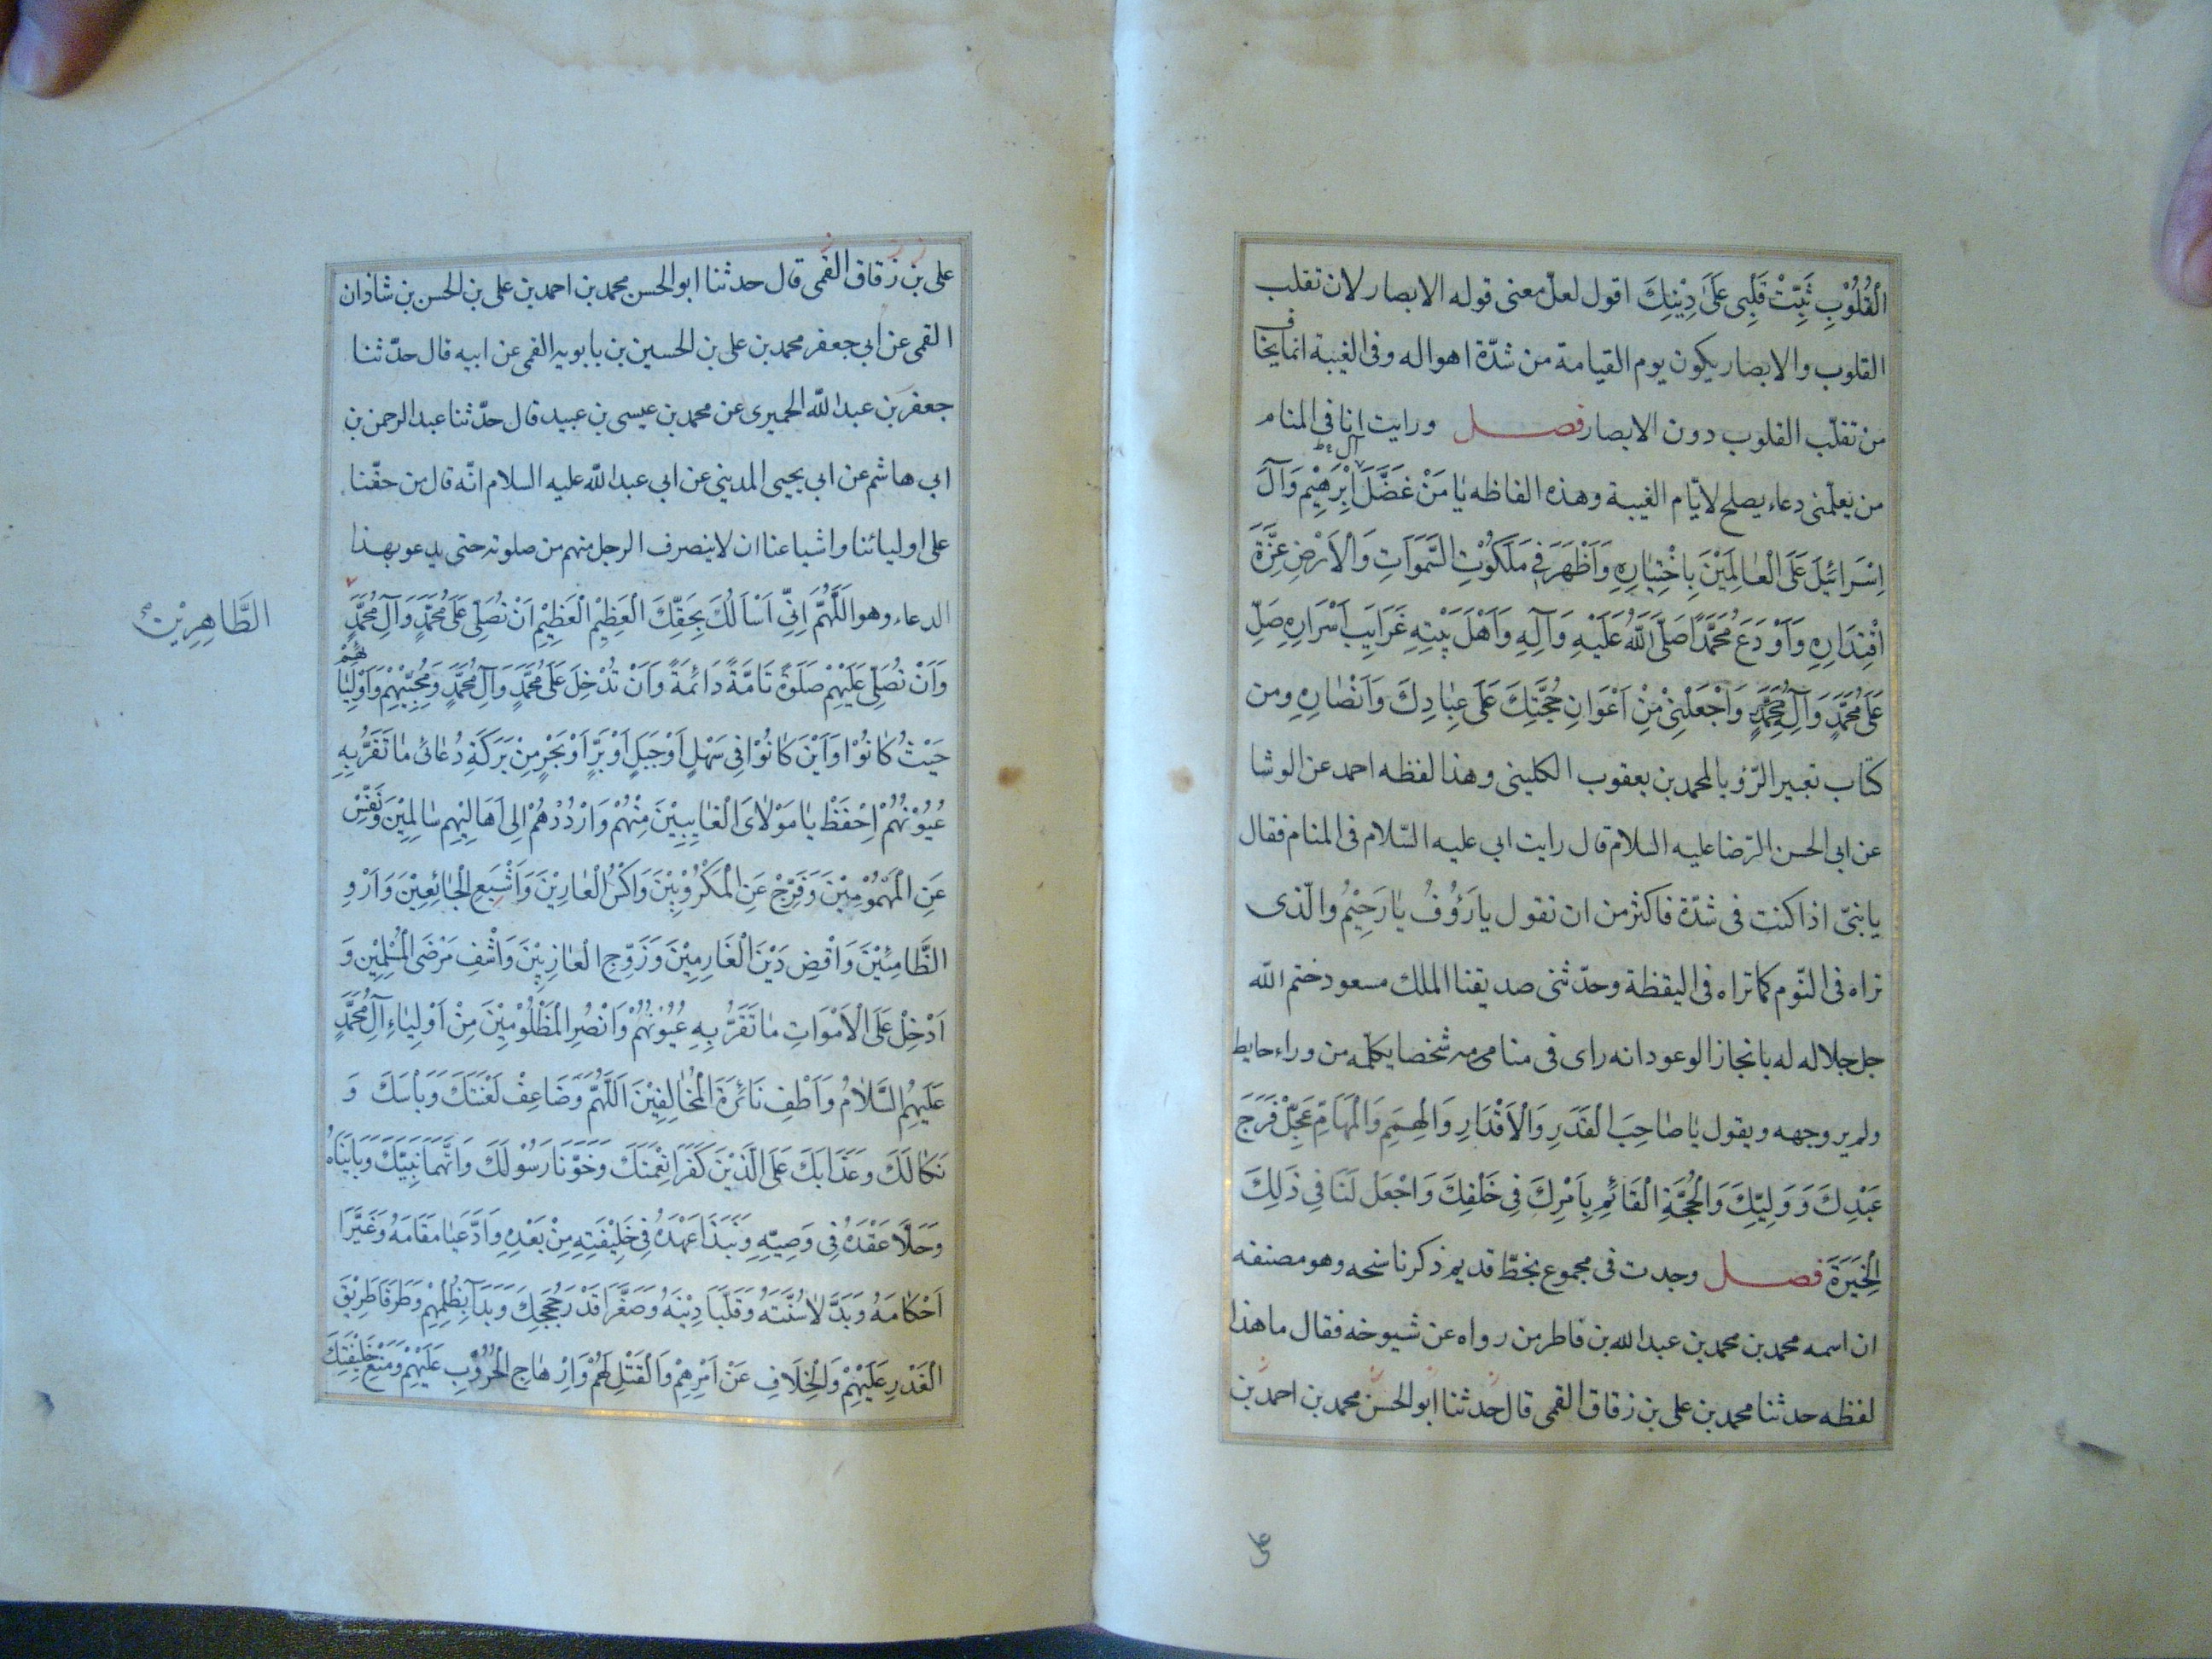 الْقُلُوْبِ ثَبِّتْ قَلْبِى عَلَىٰ دِيْنِكَ اقول لعلّ معنى قوله الابصار لان تقلب
القلوب والابصار يكون يوم القيامة من شدّة اهواله وفى الغيبة انما يخاف
من تقلّب القلوب دون الابصار فصل ورايت انا فى المنام
من يعلّمنى دعاء يصلح لايّام الغيبة وهذه الفاظه يٰا مَنْ فَضَّلَ اِبْرٰهِيْمَ وَآلَ
اِسْرٰائيلَ عَلَى الْعٰالَمِيْنَ بِاخْتِيٰارِهِ وَاَظْهَرَ فِى مَلَكُوْتِ السَّمٰوَاتِ وَالْاَرْضِ عِزَّةَ
اقْتِدَارِهِ وَاَوْدَعَ مُحَمَّدًا صَلَّى اللّٰهُ عَلَيْهِ وَآلِهِ وَاَهْلَ بَيْتِهِ غَرَايِبَ اَسْرَارِهِ صَلِّ
عَلَى مُحَمَّدٍ وَآلِهِ مُحَمَّدٍ وَاجْعَلْنِىْ مِنْ اَعْوَانِ حُجَّتِكَ عَلَى عِبٰادِكَ وَاَنْصٰارِهِ ومن
كتاب تعبير الرّؤيا لمحمد بن يعقوب الكلينى وهذا لفظه احمد عن الوشا
عن ابى الحسن الرّضا عليه السلام قال رايت ابى عليه السّلام فى المنام فقال
يا بنىّ اذا كنت فى شدّة فاكثر من ان تقول يا رَؤُفُ يٰا رَحِيْمُ والّذى
تراه فى النّوم كما تراه فى اليقظة وحدّثنى صديقنا الملك مسعود ختم اللّه
جل جلاله له بانجاز الوعود انه راى فى منامه شخصا يكلّمه من وراء حايط
ولم ير وجهه ويقول يٰا صٰاحِبَ الْقَدَرِ وَالْاَقْدَارِ وَالْهِمَمِ وَالْمَهَامِّ عَجِّلْ فَرَجَ
عَبْدِكَ وَوَلِيِّكَ وَالْحُجَّةِ الْقَائِمِ بِاَمْرِكَ فِى خَلْقِكَ وَاجْعَلْ لَنَا فِى ذَلِكَ
الْخِيَرَةَ فصل وجدت فى مجموع بخطّ قديم ذكر ناسخه وهو مصنفه
ان اسمه محمد بن محمد بن عبد الله بن فاطر من رواه عن شيوخه فقال ما هذا
لفظه حدثنا محمد بن على بن زقاق القمى قال حدثنا ابو الحسن محمد بن احمد بن
على بن زقاق القمى قال حدثنا ابو الحسن محمد بن احمد بن على بن الحسن بن شاذان
القمى عن ابي جعفر محمد بن على بن الحسين بن بابويه القمى عن ابيه قال حدّثنا
جعفر بن عبد اللّٰه الحميرى عن محمد بن عيسى بن عبيد قال حدّثنا عبد الرحمن بن
ابي هاشم عن ابي يحيى المديني عن ابي عبد اللّٰه عليه السلام انّه قال من حقّنا
على اوليائنا واشياعنا ان لاينصرف الرجل منهم من صلوته حتى يدعو بهذا
الدعاء وهو اللّٰهُمَّ اِنِّى اَسْأَلُكَ بِحَقِّكَ الْعَظِيْمِ الْعَظِيْمِ اَنْ تُصَلِّىَ عَلَى مُحَمَّدٍ وَآلِ مُحَمَّدٍ
الطَّاهِرِيْنَ
وَاَنْ تُصَلِّىَ عَلَيْهِمْ صَلٰوةً تَامَّةً دَائِمَةً وَاَنْ تُدْخِلَ عَلَى مُحَمَّدٍ وَآلِ مُحَمَّدٍ وَمُحِبِّيْهِمْ وَاَوْلِيٰائِهِمْ
حَيْثُ كٰانُوْا وَاَيْنَ كٰانُوْا فِى سَهْلٍ اَوْ جَبَلٍ اَوْ بَرٍّ اَوْ بَحْرٍ مِنْ بَرَكَةِ دُعٰائى مٰا تَقَرُّ بِهِ
عُيُوْنُهُمْ اِحْفَظْ يٰا مَوْلٰاىَ الْغٰايِبِيْنَ مِنْهُمْ وَارْدُدْهُمْ اِلى اَهَالِيْهِمْ سٰالِمِيْنَ وَنَفِّسْ
عَنِ الْمَهْمُوْمِيْنَ وَفَرِّجْ عَنِ الْمَكْرُوْبِيْنَ وَاكْسُ الْعٰارِيْنَ وَاَشْبِعِ الْجٰائِعِيْنَ وَاَرْوِ
الظَّامِئِيْنَ وَاقْضِ دَيْنَ الْغَارِمِيْنَ وَزَوِّجِ الْعٰازِبِيْنَ وَاشْفِ مَرْضَى الْمُسْلِمِيْنَ وَ
اَدْخِلْ عَلَى الْاَمْوَاتِ مٰا تَقَرُّ بِهِ عُيُوْنُهُمْ وَانْصُرِ الْمَظْلُوْمِيْنَ مِنْ اَوْلِيٰاءِ آلِ مُحَمَّدٍ
عَلَيْهِمُ السَّلٰامُ وَاَطْفِ نَائِرَةَ الْمُخٰالِفِيْنَ اَللّٰهُمَّ وَضَاعِفْ لَعْنَتَكَ وَبَأْسَكَ وَ
نَكٰالَكَ وَعَذَابَكَ عَلَى الَّذَيْنَ كَفَرَا نِعْمَتَكَ وَخَوَّنَا رَسُوْلَكَ وَاتَّهَمَا نَبِيَّكَ وَبَايَنَاهُ
وَحَلَّا عَقْدَهُ فِى وَصِيِّهِ وَنَبَذَا عَهْدَهُ فِى خَلِيْفَتِهِ مِنْ بَعْدِهِ وَادَّعَيٰا مَقَامَهُ وَغَيَّرَا
اَحْكٰامَهُ وَبَدَّلاٰ سُنَّتَهُ وَقَلَّبَا دِيْنَهُ وَصَغَّرَا قَدْرَ حُجَجِكَ وَبَدَآ بِظُلْمِهِمْ وَطَرَّقَا طَرِيْقَ
الْغَدْرِ عَلَيْهِمْ وَالْخِلَافِ عَنْ اَمْرِهِمْ وَالْقَتْلِ لَهُمْ وَاِرْهٰاجِ الْحُرُوْبِ عَلَيْهِمْ وَمَنْعِ خَلِيْفَتِكَ